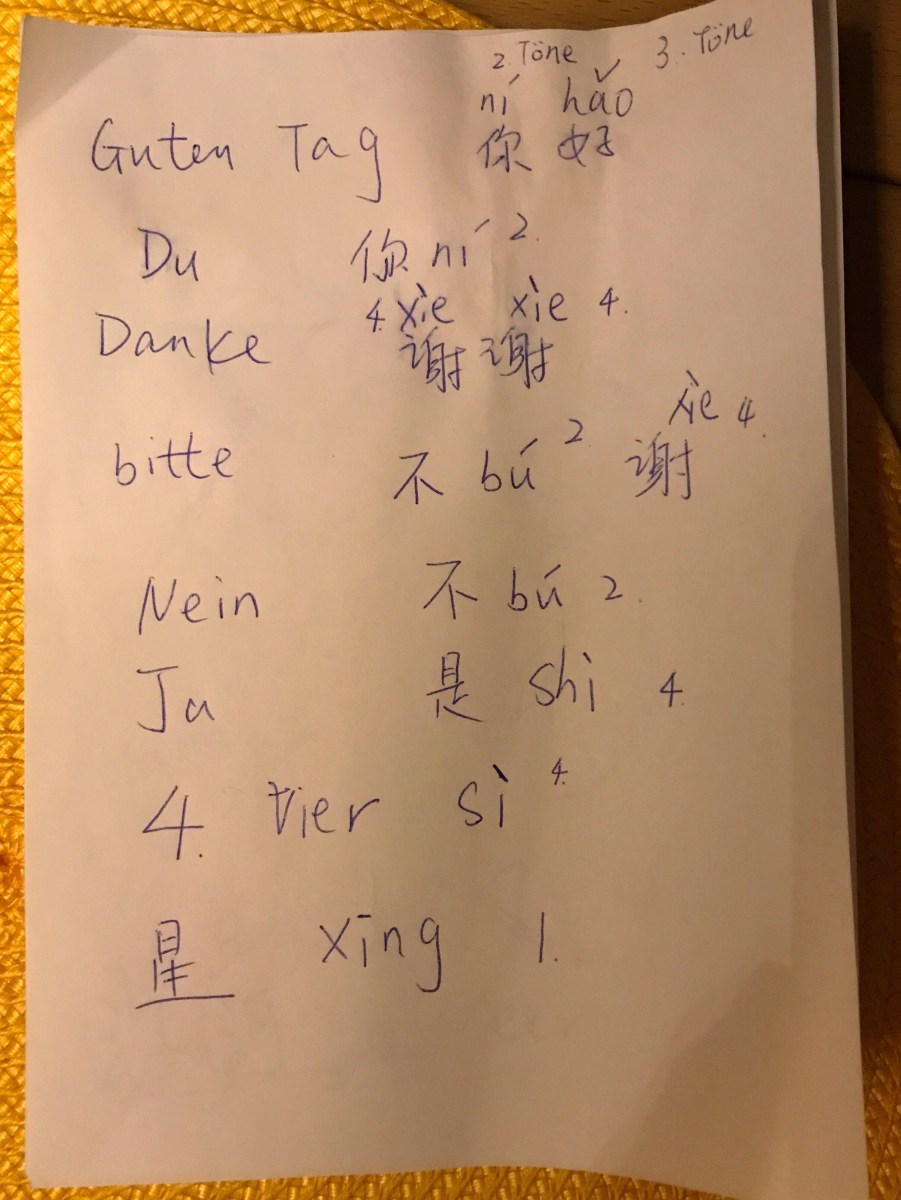 2. Töne 3. Töne
ní hǎo
Guten Tag 你 好
Du 你 ní 2.
4. xìe xìe 4.
Danke 谢 谢
xìe 4.
bitte 不 bú 2 谢
Nein 不 bú 2.
Ja 是 shì 4
4. vier sì 4.
星 xīng 1.